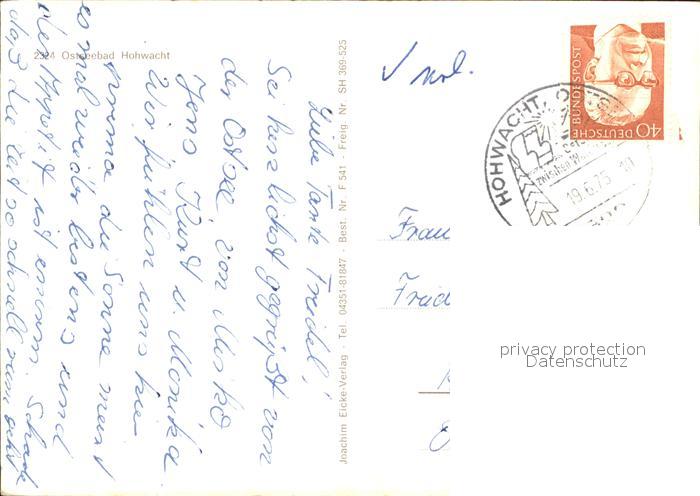 2324 Ostseebad Hohwacht
Liebe Tante Friedel!
Sei herzlichst gegrüßt von
der Ostsee von Mirko
Jens Kurt u. Monika.
Wir fühlen uns hier
prima die Sonne meint
es mal wieder bestens und
der Appetit ist enorm. Schade
daß die Zeit so schnell
Joachim Eicke-Verlag - Tel. 04351-81847 - Best. Nr. F 541 - Freig. Nr. SH 369-525
DEUTSCHE BUNDESPOST
40
HOHWACHT,
19.6.75
Frau
privacy protection
Datenschutz